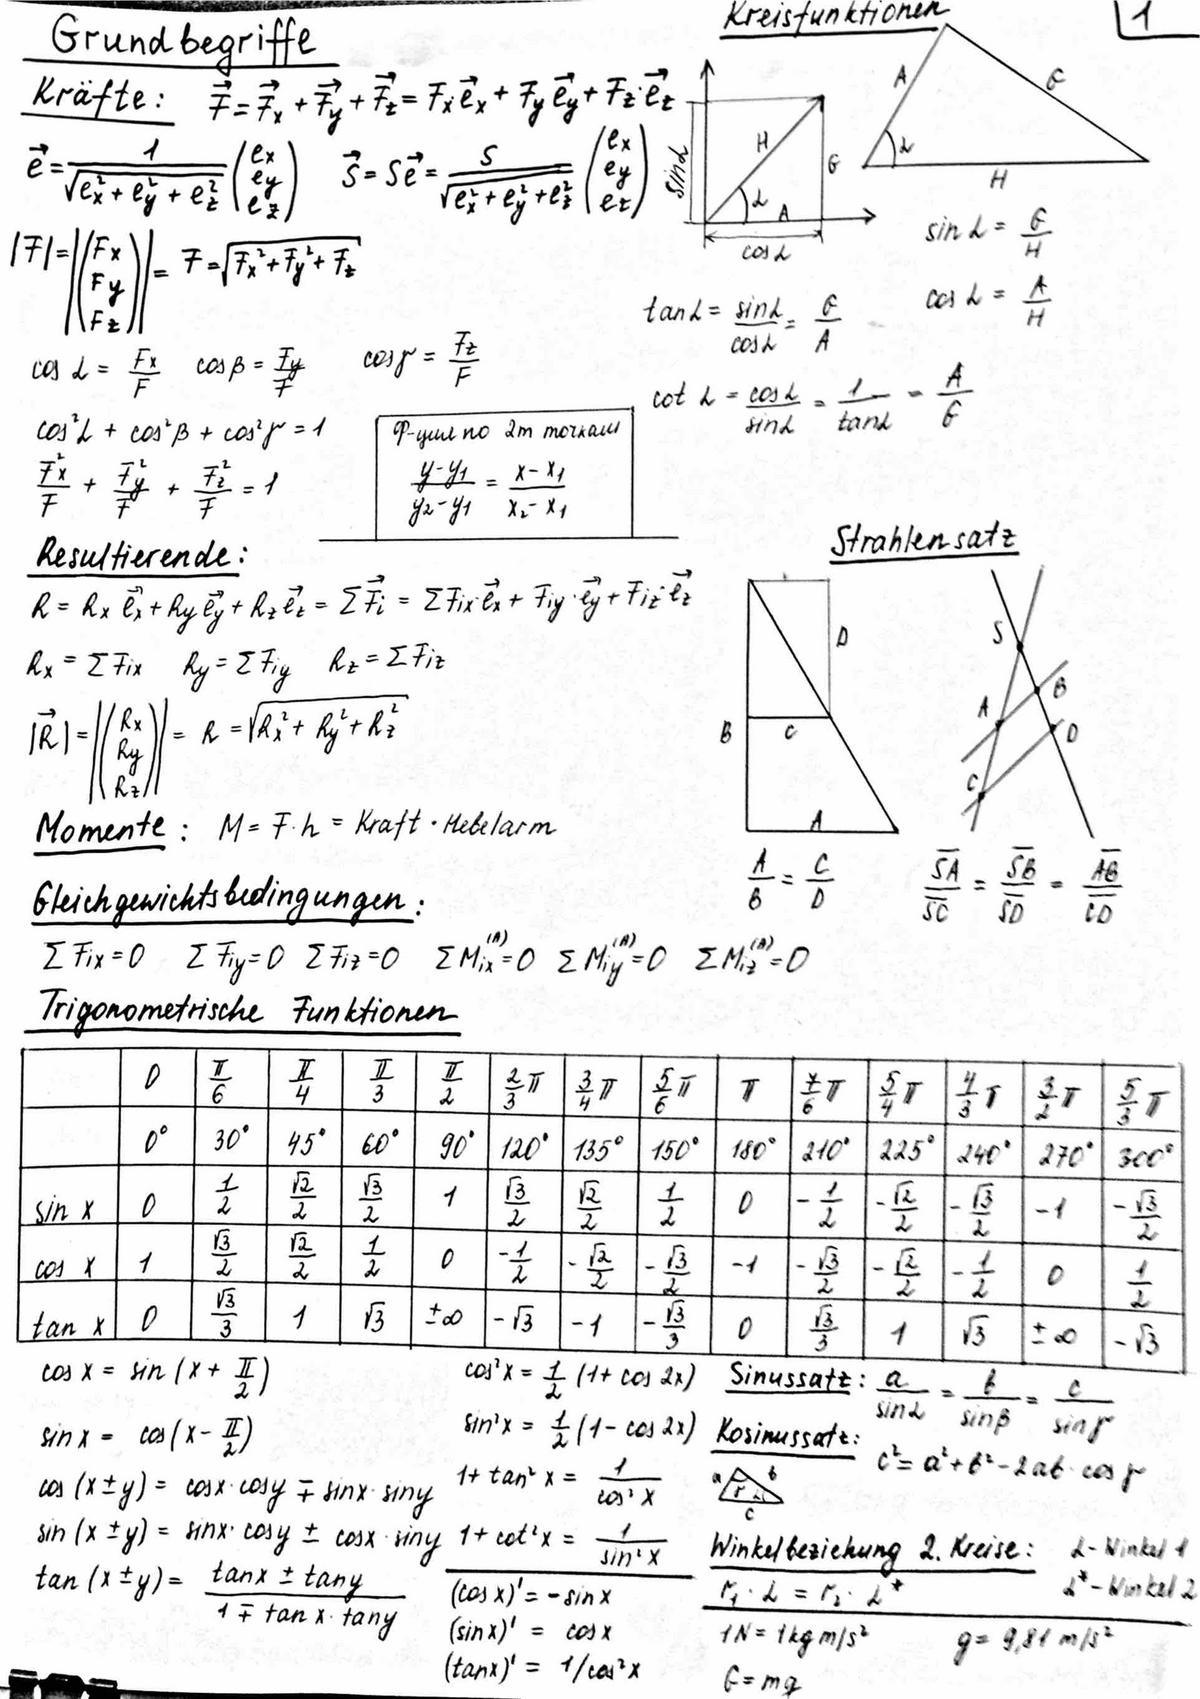 1
Grundbegriffe
Kräfte: F⃗ = F⃗x + F⃗y + F⃗z = Fx·e⃗x + Fy e⃗y + Fz·e⃗z
e⃗ = 1/√(ex² + ey² + ez²) (ex ey ez)   s⃗ = S e⃗ = S/√(ex² + ey² + ez²) (ex ey ez)
|F| = |(Fx Fy Fz)| = F = √(Fx² + Fy² + Fz)
cos α = Fx/F   cos β = Fy/F   cos γ = Fz/F
cos²α + cos²β + cos²γ = 1
F²x/F + F²y/F + F²z/F = 1
Ф-ция по 2м точкам
(y-y1)/(y2-y1) = (x-x1)/(x2-x1)
Kreisfunktionen
sin α
H
G
α
A
cos α
A
G
α
H
sin α = G/H
cos α = A/H
tan α = sin α/cos α = G/A
cot α = cos α/sin α = 1/tan α = A/G
Resultierende:
R = Rx e⃗x + Ry e⃗y + Rz e⃗z = ΣF⃗i = ΣFix·e⃗x + Fiy·e⃗y + Fiz·e⃗z
Rx = ΣFix   Ry = ΣFiy   Rz = ΣFiz
|R⃗| = |(Rx Ry Rz)| = R = √(Rx² + Ry² + Rz²)
Momente: M = F·h = Kraft · Hebelarm
Strahlensatz
D
B
C
A
S
B
A
D
C
A/B = C/D   SA/SC = SB/SD = AB/CD
Gleichgewichtsbedingungen:
ΣFix = 0   ΣFiy = 0   ΣFiz = 0   ΣMix^(A) = 0   ΣMiy^(A) = 0   ΣMiz^(A) = 0
Trigonometrische Funktionen
0   π/6   π/4   π/3   π/2   2/3 π   3/4 π   5/6 π   π   7/6 π   5/4 π   4/3 π   3/2 π   5/3 π
0°   30°   45°   60°   90°   120°   135°   150°   180°   210°   225°   240°   270°   300°
sin x   0   1/2   √2/2   √3/2   1   √3/2   √2/2   1/2   0   -1/2   -√2/2   -√3/2   -1   -√3/2
cos x   1   √3/2   √2/2   1/2   0   -1/2   -√2/2   -√3/2   -1   -√3/2   -√2/2   -1/2   0   1/2
tan x   0   √3/3   1   √3   ±∞   -√3   -1   -√3/3   0   √3/3   1   √3   ±∞   -√3
cos x = sin (x + π/2)
sin x = cos (x - π/2)
cos (x ± y) = cosx·cosy ∓ sinx·siny
sin (x ± y) = sinx·cosy ± cosx·siny
tan (x ± y) = (tanx ± tany)/(1 ∓ tan x·tany)
cos²x = 1/2 (1 + cos 2x)
sin²x = 1/2 (1 - cos 2x)
1 + tan² x = 1/cos² x
1 + cot²x = 1/sin² x
(cos x)' = -sin x
(sin x)' = cos x
(tanx)' = 1/cos²x
Sinussatz: a/sin α = b/sin β = c/sin γ
Kosinussatz:
c² = a² + b² - 2ab·cos γ
a
b
γ
α
c
Winkelbeziehung 2. Kreise:
α - Winkel 1
α* - Winkel 2
r1·α = r2·α*
1N = 1kg m/s²   g = 9,81 m/s²
G = mg